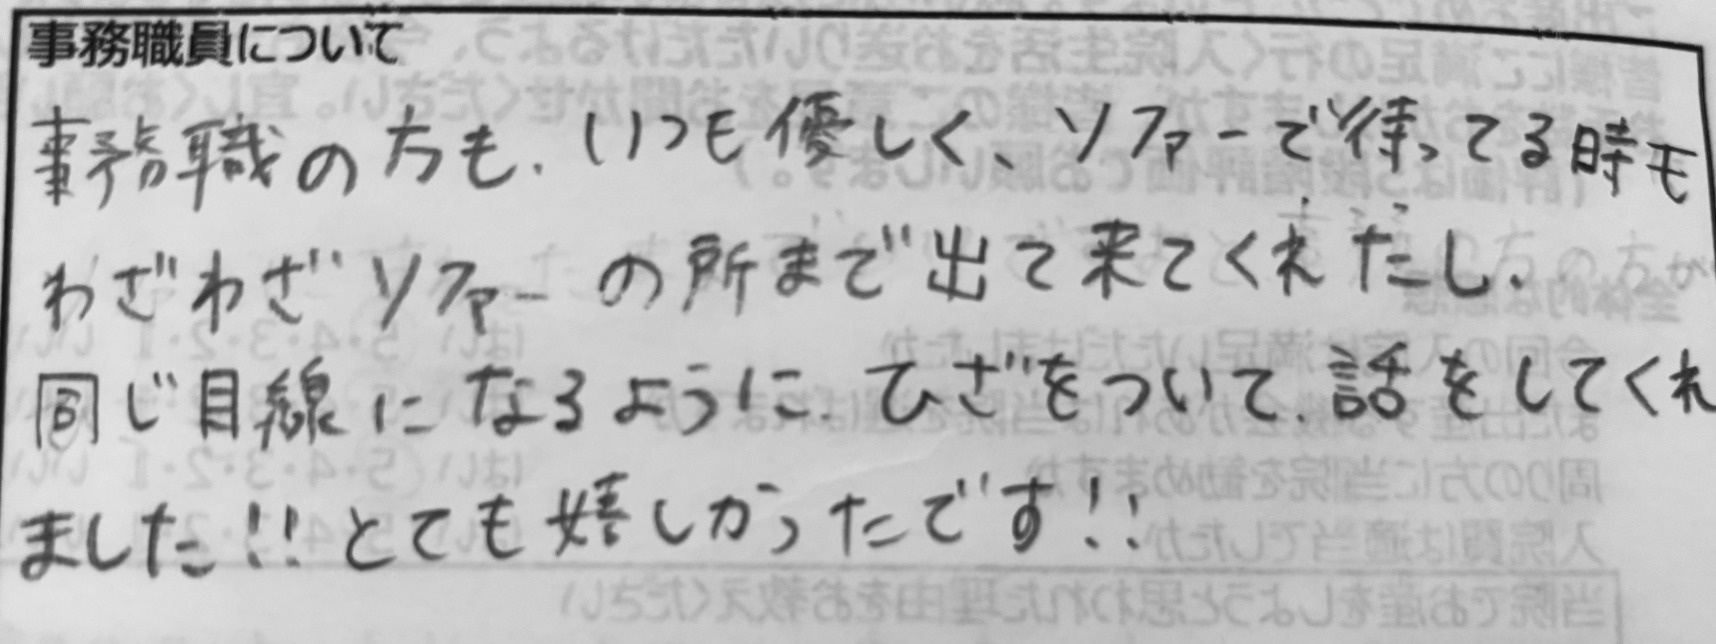 事務職員について
事務職の方も、いつも優しく、ソファーで待ってる時モ
わざわざソファーの所まで出て来てくれたし、
同じ目線になるように、ひざをついて、話をしてくれ
ました!!とても嬉しかったです!!